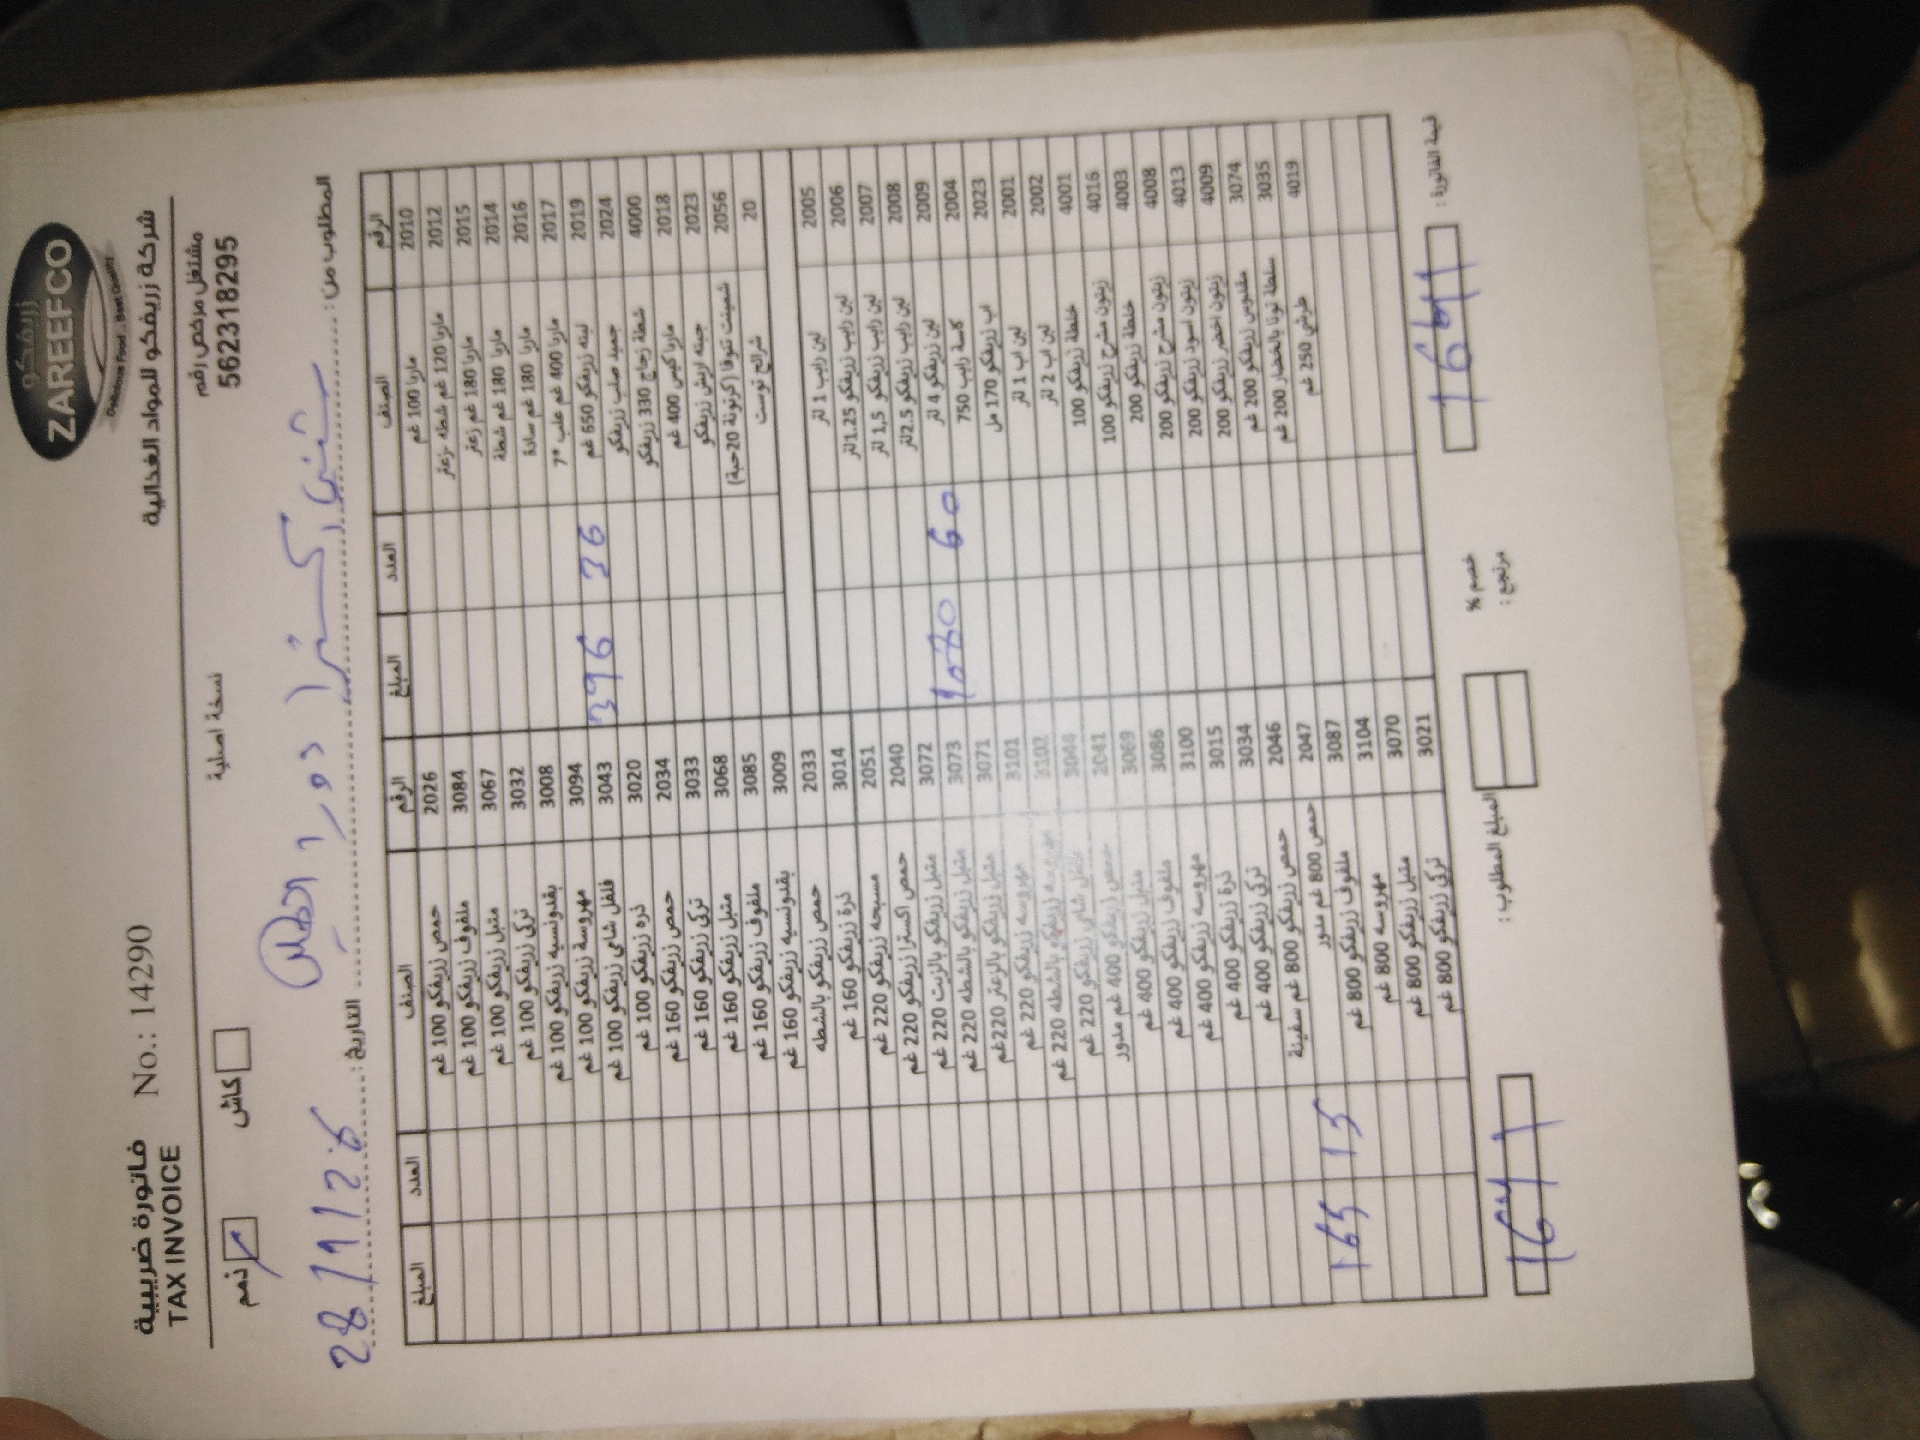 زريفكو
ZAREEFCO
Delicious Food . Best Quality
شركة زريفكو للمواد الغذائية
فاتورة ضريبية
TAX INVOICE
No.: 14290
مشتغل مرخص رقم
562318295
نسخة اصلية
ذمم كاش
المطلوب من:
التاريخ: 28/1/26
الرقم الصنف العدد المبلغ الرقم الصنف العدد المبلغ
2010 ماريا 100 غم 2026 حمص زريفكو 100 غم
2012 ماريا 120 غم شطه +زعتر 3084 ملفوف زريفكو 100 غم
2015 ماريا 180 غم زعتر 3067 متبل زريفكو 100 غم
2014 ماريا 180 غم شطة 3032 تركي زريفكو 100 غم
2016 ماريا 180 غم سادة 3008 بقدونسيه زريفكو 100 غم
2017 ماريا 400 غم علب *7 3094 مهروسة زريفكو 100 غم
2019 لبنه زريفكو 650 غم 36 396 3043 فلفل شامي زريفكو 100 غم
2024 جميد صلب زريفكو 3020 ذره زريفكو 100 غم
4000 شطة زجاج 330 زريفكو 2034 حمص زريفكو 160 غم
2018 ماريا كيس 400 غم 3033 تركي زريفكو 160 غم
2023 جبنه اريش زريفكو 3068 متبل زريفكو 160 غم
2056 شمينت تنوفا (كرتونة 20حبة) 3085 ملفوف زريفكو 160 غم
20 شرائح توست 3009 بقدونسيه زريفكو 160 غم
2033 حمص زريفكو بالشطه
2005 لبن رايب 1 لتر 3014 ذرة زريفكو 160 غم
2006 لبن رايب زريفكو 1.25لتر 2051 مسبحه زريفكو 220 غم
2007 لبن رايب زريفكو 1,5 لتر 2040 حمص اكسترا زريفكو 220 غم
2008 لبن رايب زريفكو 2.5لتر 3072 متبل زريفكو بالزيت 220 غم
2009 لبن زريفكو 4 لتر 60 1080 3073 متبل زريفكو بالشطه 220 غم
2004 كاسة رايب 750 3071 متبل زريفكو بالزعتر 220غم
2023 اب زريفكو 170 مل 3101 مهروسه زريفكو 220 غم
2001 لبن اب 1 لتر 3102 مهروسه زريفكو بالشطه 220 غم
2002 لبن اب 2 لتر 3044 فلفل شامي زريفكو 220 غم
4001 خلطة زريفكو 100 2041 حمص زريفكو 400 غم مدور
4016 زيتون مشرح زريفكو 100 3069 متبل زريفكو 400 غم
4003 خلطة زريفكو 200 3086 ملفوف زريفكو 400 غم
4008 زيتون مشرح زريفكو 200 3100 مهروسه زريفكو 400 غم
4013 زيتون اسود زريفكو 200 3015 ذرة زريفكو 400 غم
4009 زيتون اخضر زريفكو 200 3034 تركي زريفكو 400 غم
3074 مقدوس زريفكو 200 غم 2046 حمص زريفكو 800 غم سفينة
3035 سلطة تونا بالخضار 200 غم 2047 حمص 800 غم مدور
4019 طرشي 250 غم 3087 ملفوف زريفكو 800 غم 15 165
3104 مهروسه 800 غم
3070 متبل زريفكو 800 غم
3021 تركي زريفكو 800 غم
الفاتورة: 1641
خصم %
مرتجع:
المبلغ المطلوب: 1641